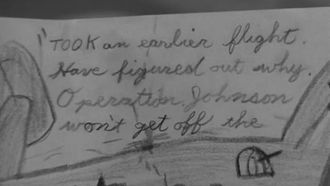 "TOOK an earlier flight.
Have figured out why
Operation Johnson
won't get off the